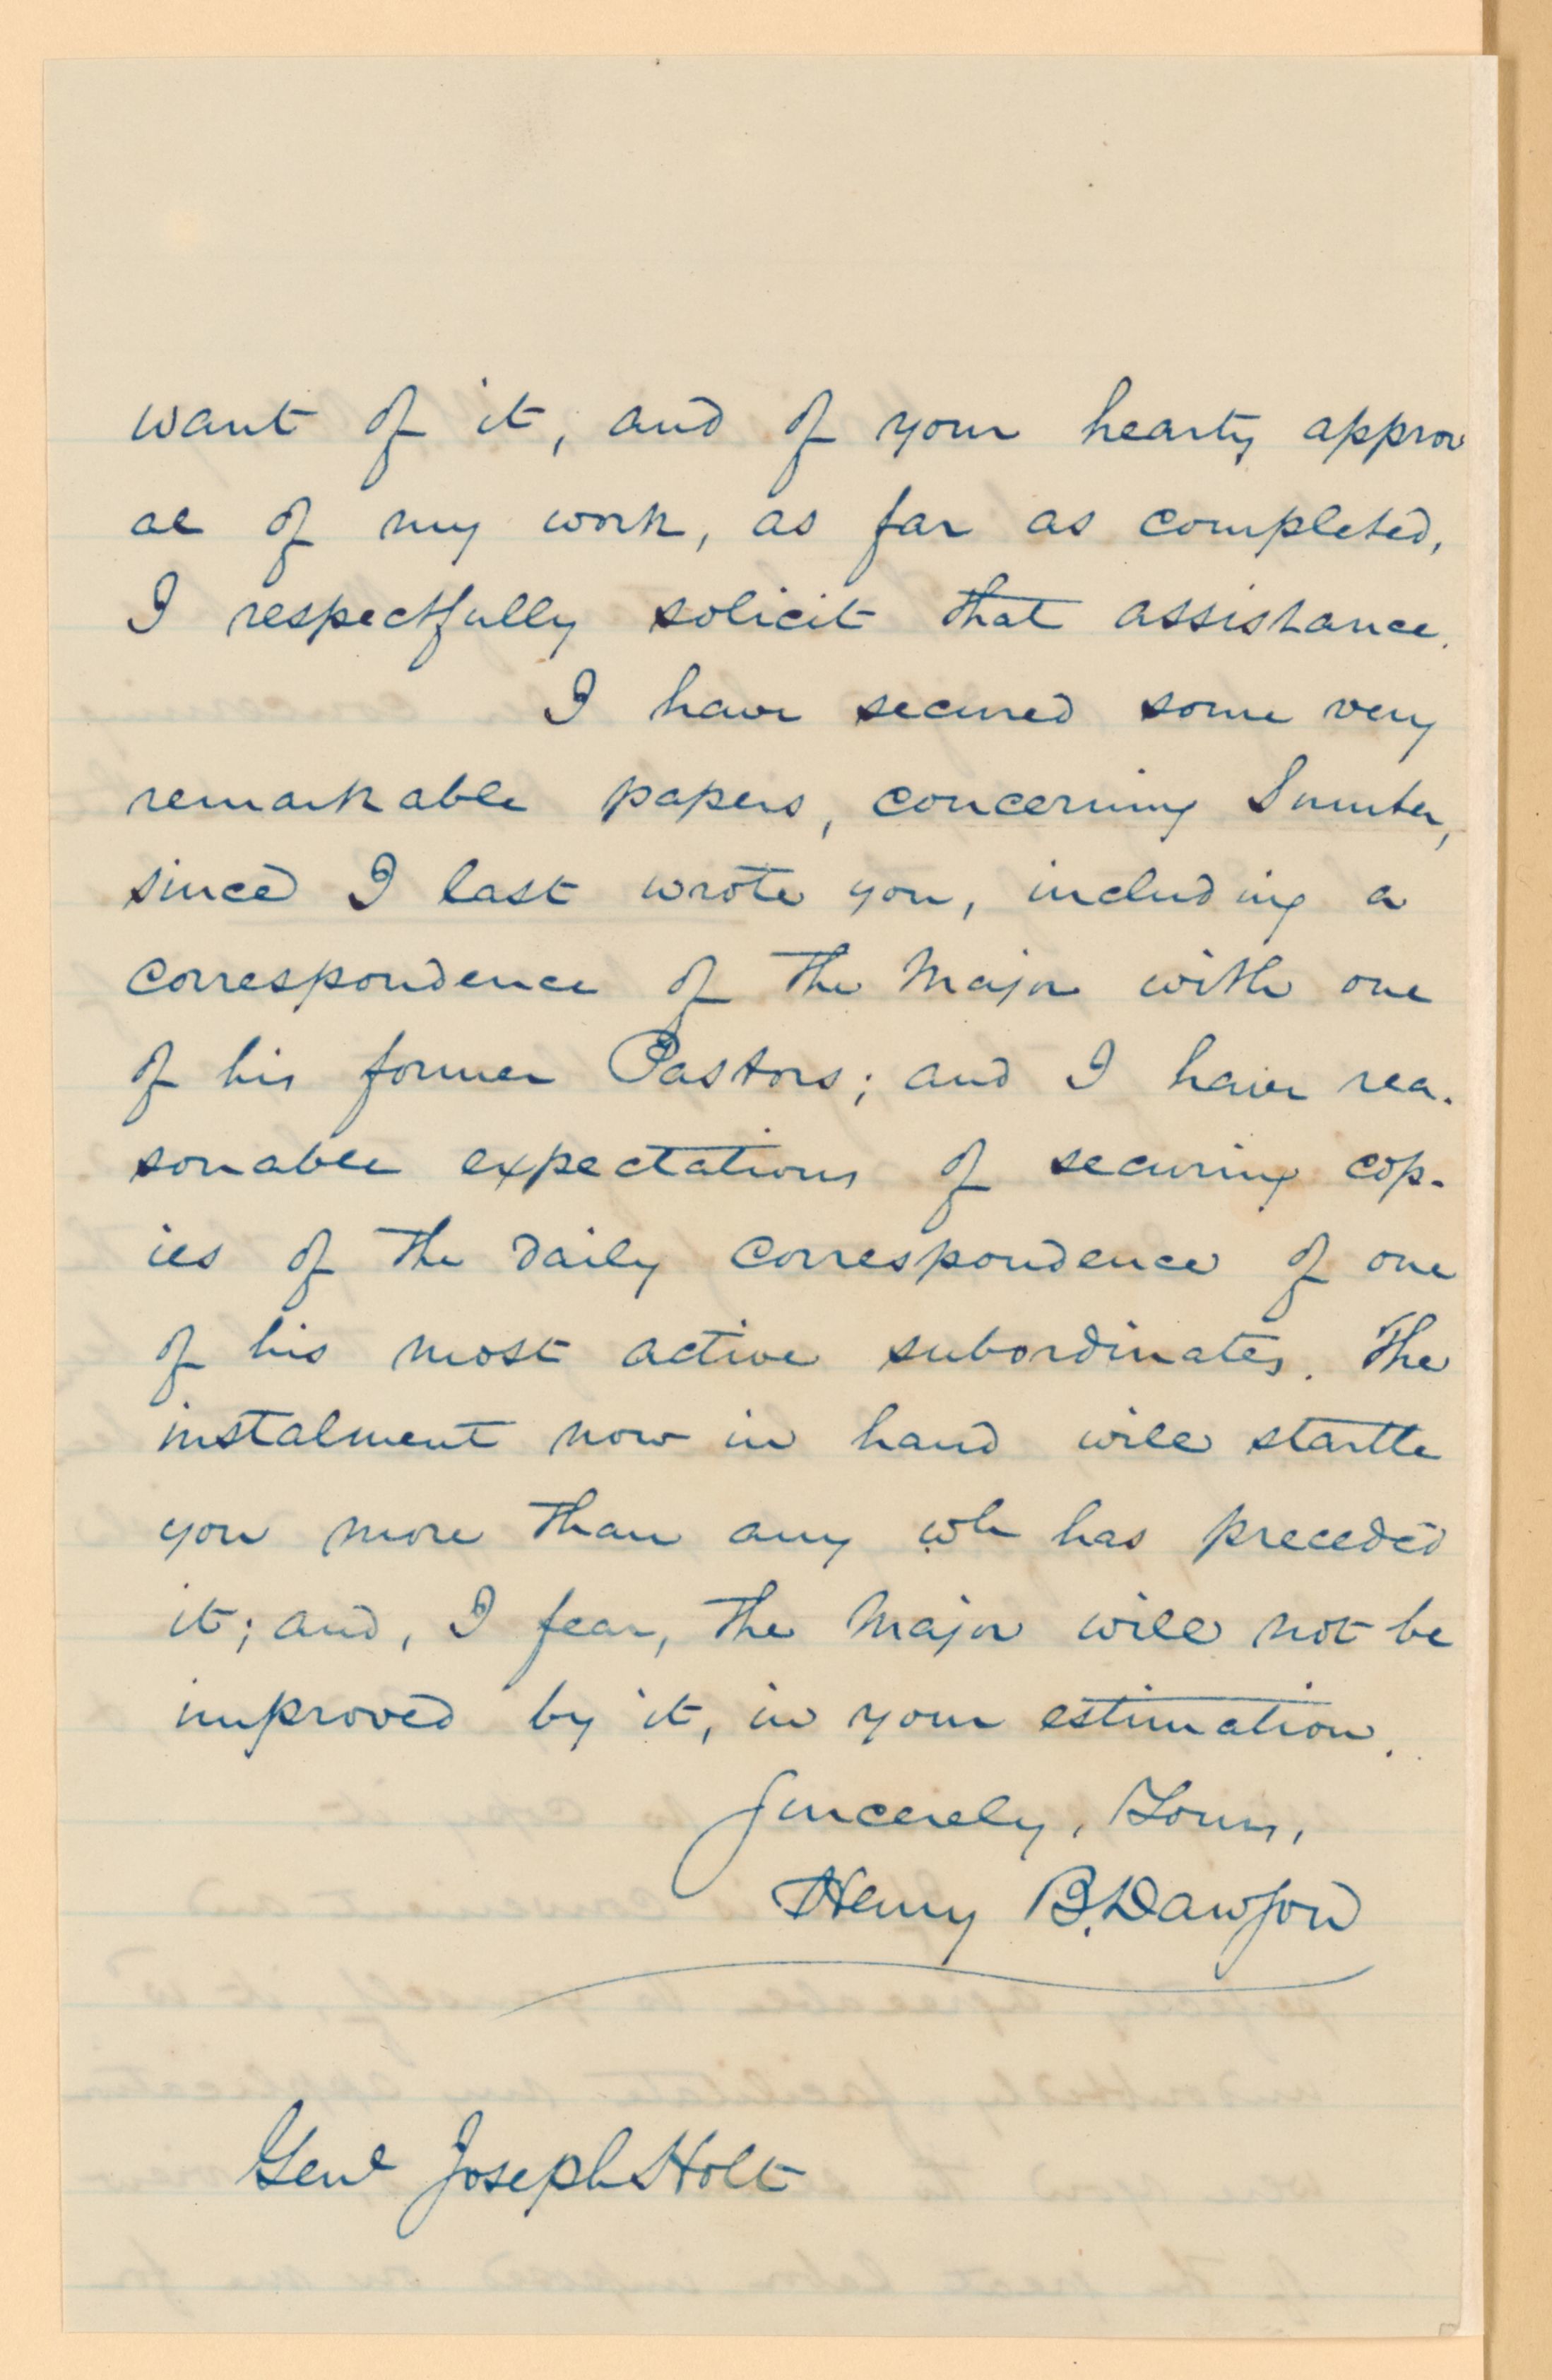 want of it, and of your hearty approv
al of my work, as far as completed,
I respectfully solicit that assistance.
I have secured some very
remarkable papers, concerning Sumter,
since I last wrote you, including a
correspondence of the Major with one
of his former Pastors; and I have rea-
sonable expectations of securing cop-
ies of the daily correspondence of one
of his most active subordinates. The
instalment now in hand will startle
you more than any wh has preceded
it; and, I fear, the Major will not be
improved by it, in your estimation.
Sincerely, Yours,
Henry B. Dawson
Genl Joseph Holt